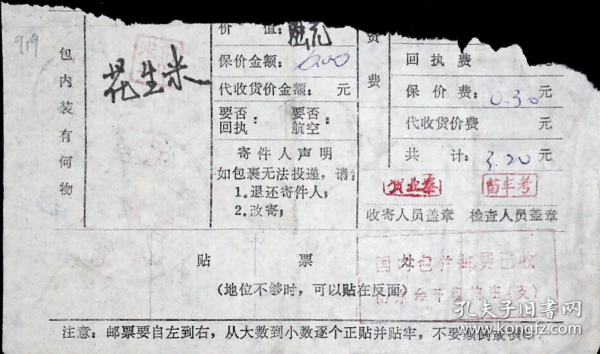 919
包内装有何物
花生米
价 值: 元
保价金额: 元
代收货价金额: 元
要否回执: 要否航空:
寄件人声明
如包裹无法投递，请:
1.退还寄件人;
2.改寄;
费
费
回执费
保价费: 0.30元
代收货价费 元
共 计: 3.20元
收寄人员盖章 检查人员盖章
贴 票 处
(地位不够时，可以贴在反面)
国内包件邮费已收
注意: 邮票要自左到右，从大数到小数逐个正贴并贴牢，不要颠倒或折
孔夫子旧书网
kongfz.com